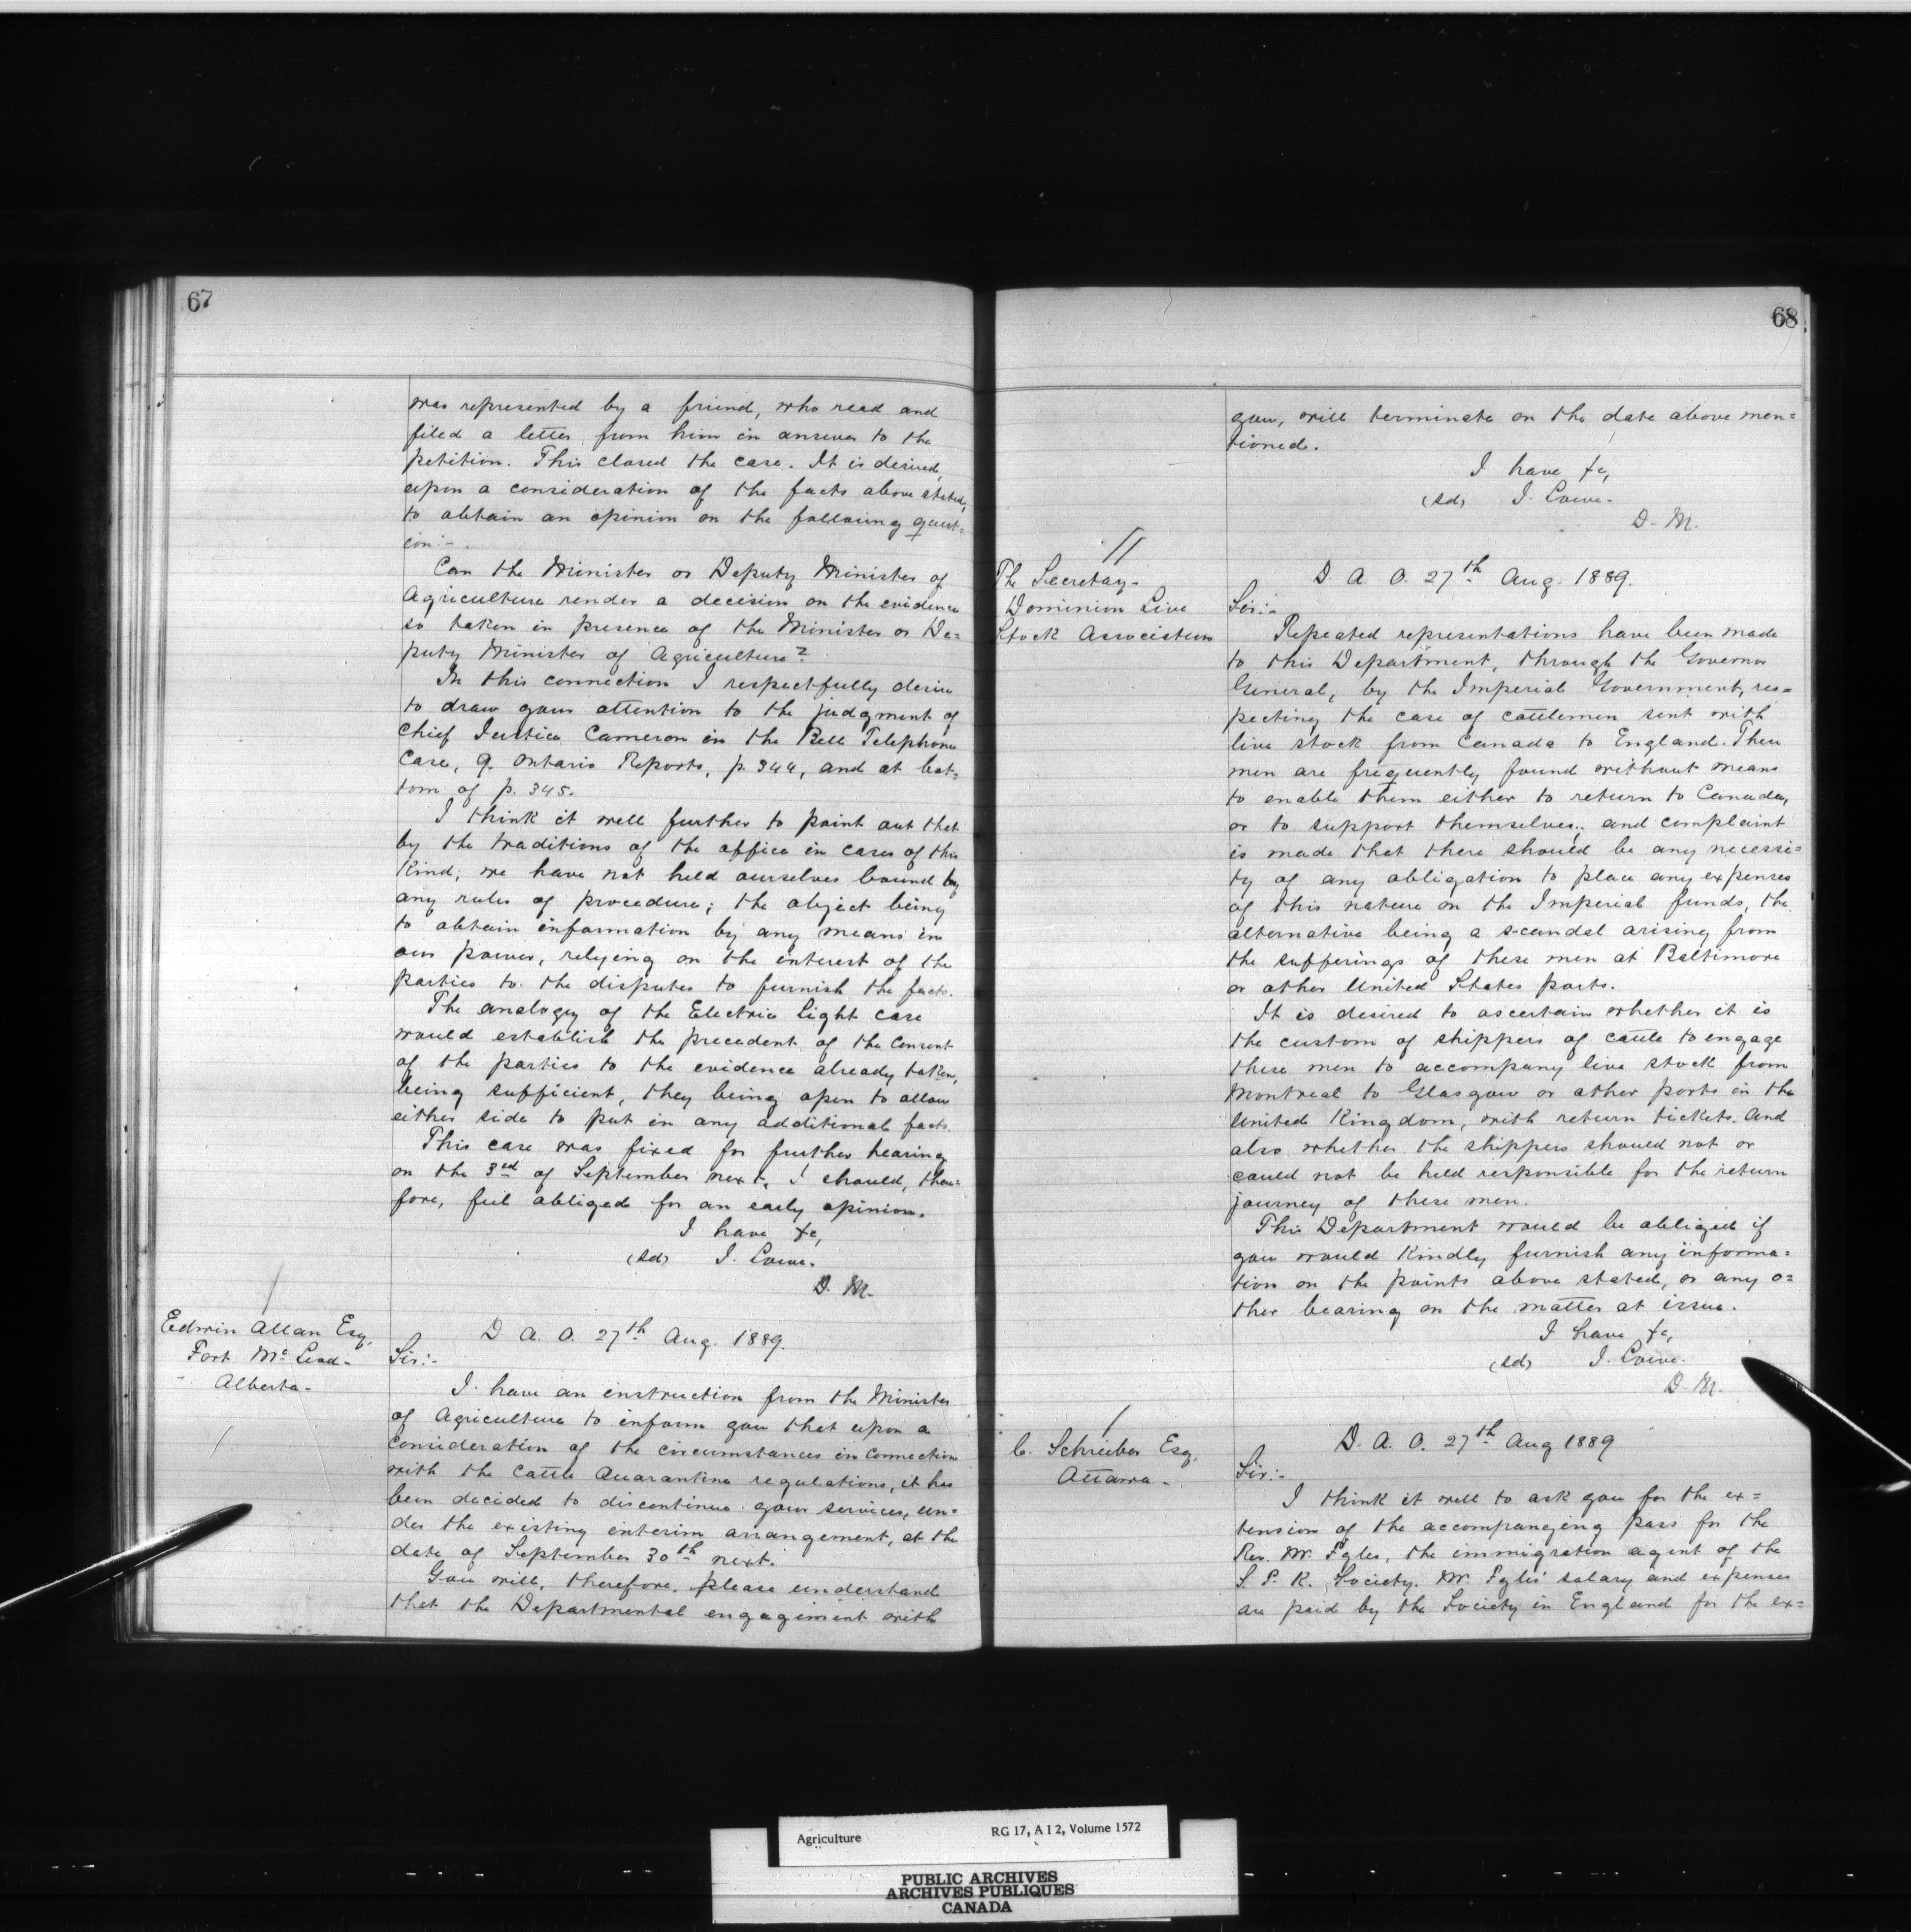 67
was represented by a friend, who read and
filed a letter from him in answer to the
petition. This closed the case. It is desired,
upon a consideration of the facts above stated,
to obtain an opinion on the following quest=
ion:-
Can the Minister or Deputy Minister of
Agriculture render a decision on the evidence
so taken in presence of the Minister or De=
puty Minister of Agriculture?
In this connection I respectfully desire
to draw your attention to the judgment of
Chief Justice Cameron in the Bell Telephone
Case, 9. Ontario Reports, p. 344, and at bot=
tom of p. 345.
I think it well further to point out that
by the traditions of the office in cases of this
Kind, we have not held ourselves bound by
any rules of procedure; the object being
to obtain information by any means in
our power, relying on the interest of the
parties to the disputes to furnish the facts.
The analogy of the Electric Light case
would establish the precedent of the Consent
of the parties to the evidence already taken,
being sufficient, they being open to allow
either side to put in any additional facts.
This case was fixed for further hearing
on the 3rd of September next, I should, there=
fore, feel obliged for an early opinion.
I have &c,
(sd) J. Lowe.
D. M.
Edwin Allan Esq.
Fort Mc Leod-
Alberta-
D. A. O. 27th Aug. 1889.
Sir:-
I have an instruction from the Minister
of Agriculture to inform you that upon a
consideration of the circumstances in connection
with the Cattle Quarantine regulations, it has
been decided to discontinue your services, un=
der the existing interim arrangement, at the
date of September 30th next.
You will, therefore, please understand
that the Departmental engagement with
68
you, will terminate on the date above men=
tioned.
I have &c,
(sd) J. Lowe-
D. M.
The Secretary-
Dominion Live
Stock Association
D. A. O. 27th Aug. 1889.
Sir:-
Repeated representations have been made
to this Department, through the Governor
General, by the Imperial Government, res=
pecting the case of cattlemen sent with
live stock from Canada to England. These
men are frequently found without means
to enable them either to return to Canada,
or to support themselves; and complaint
is made that there should be any necessi=
ty of any obligation to place any expenses
of this nature on the Imperial funds, the
alternative being a scandal arising from
the sufferings of these men at Baltimore
or other United States ports.
It is desired to ascertain whether it is
the custom of shippers of cattle to engage
these men to accompany live stock from
Montreal to Glasgow or other ports in the
United Kingdom, with return tickets. And
also whether the shippers should not or
could not be held responsible for the return
journey of these men.
This Department would be obliged if
you would Kindly furnish any informa=
tion on the points above stated, or any o=
ther bearing on the matter at issue.
I have &c,
(sd) J. Lowe-
D. M.
C. Schreiber Esq.
Ottawa-
D. A. O. 27th Aug 1889
Sir:-
I think it well to ask you for the ex=
tension of the accompanying pass for the
Rev. Mr. Fyles, the immigration agent of the
S. P. K. Society. Mr. Fyles' salary and expenses
are paid by the Society in England for the ex=
Agriculture RG 17, A I 2, Volume 1572
PUBLIC ARCHIVES
ARCHIVES PUBLIQUES
CANADA